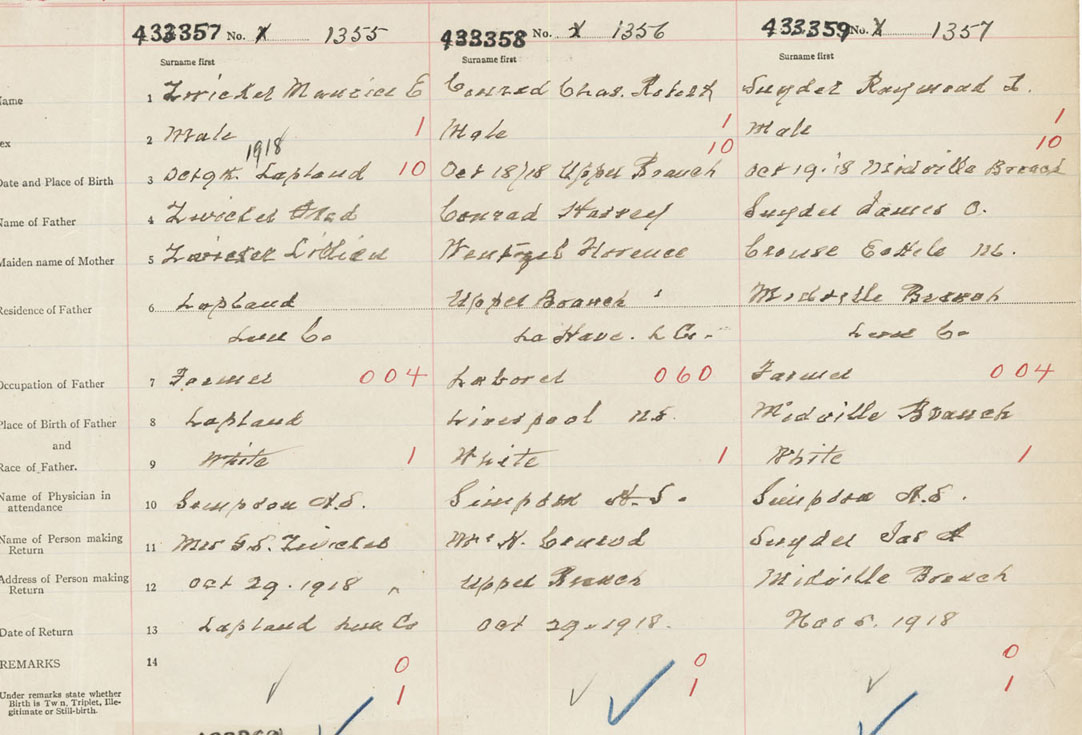 433357 No. X 1355 433358 No. X 1356 433359 No. X 1357
Surname first Surname first Surname first
ame 1 Zwicker Maurice E Conrad Chas. Robert Snyder Raymond
ex 2 Male 1 Male 1 Male 1
1918 10 10
Date and Place of Birth 3 Lapland 10 Oct 18/18 Upper Branch Oct 19.'18 Midville Branch
Name of Father 4 Zwicker Conrad Harvey Snyder James O.
Maiden name of Mother 5 Zwicker Lillian Wentzel Florence Crouse M.
Residence of Father 6 Lapland Upper Branch Midville Branch
Lun Co La Have. L Co. Lun Co
Occupation of Father 7 Farmer 004 Laborer 060 Farmer 004
Place of Birth of Father 8 Lapland Liverpool N.S. Midville Branch
and
Race of Father. 9 White 1 White 1 White 1
Name of Physician in 10 Simpson A.S. Simpson A.S. Simpson A.S.
attendance
Name of Person making 11 Mrs Zwicker Conrod Snyder Jas
Return
Address of Person making 12 Oct 29.1918 " Upper Branch Midville Branch
Return
Date of Return 13 Lapland Lun Co Oct 29.1918. 1918
REMARKS 14 0 0 0
Under remarks state whether 1 1 1
Birth is Twn, Triplet, Ille-
gitimate or Still-birth.